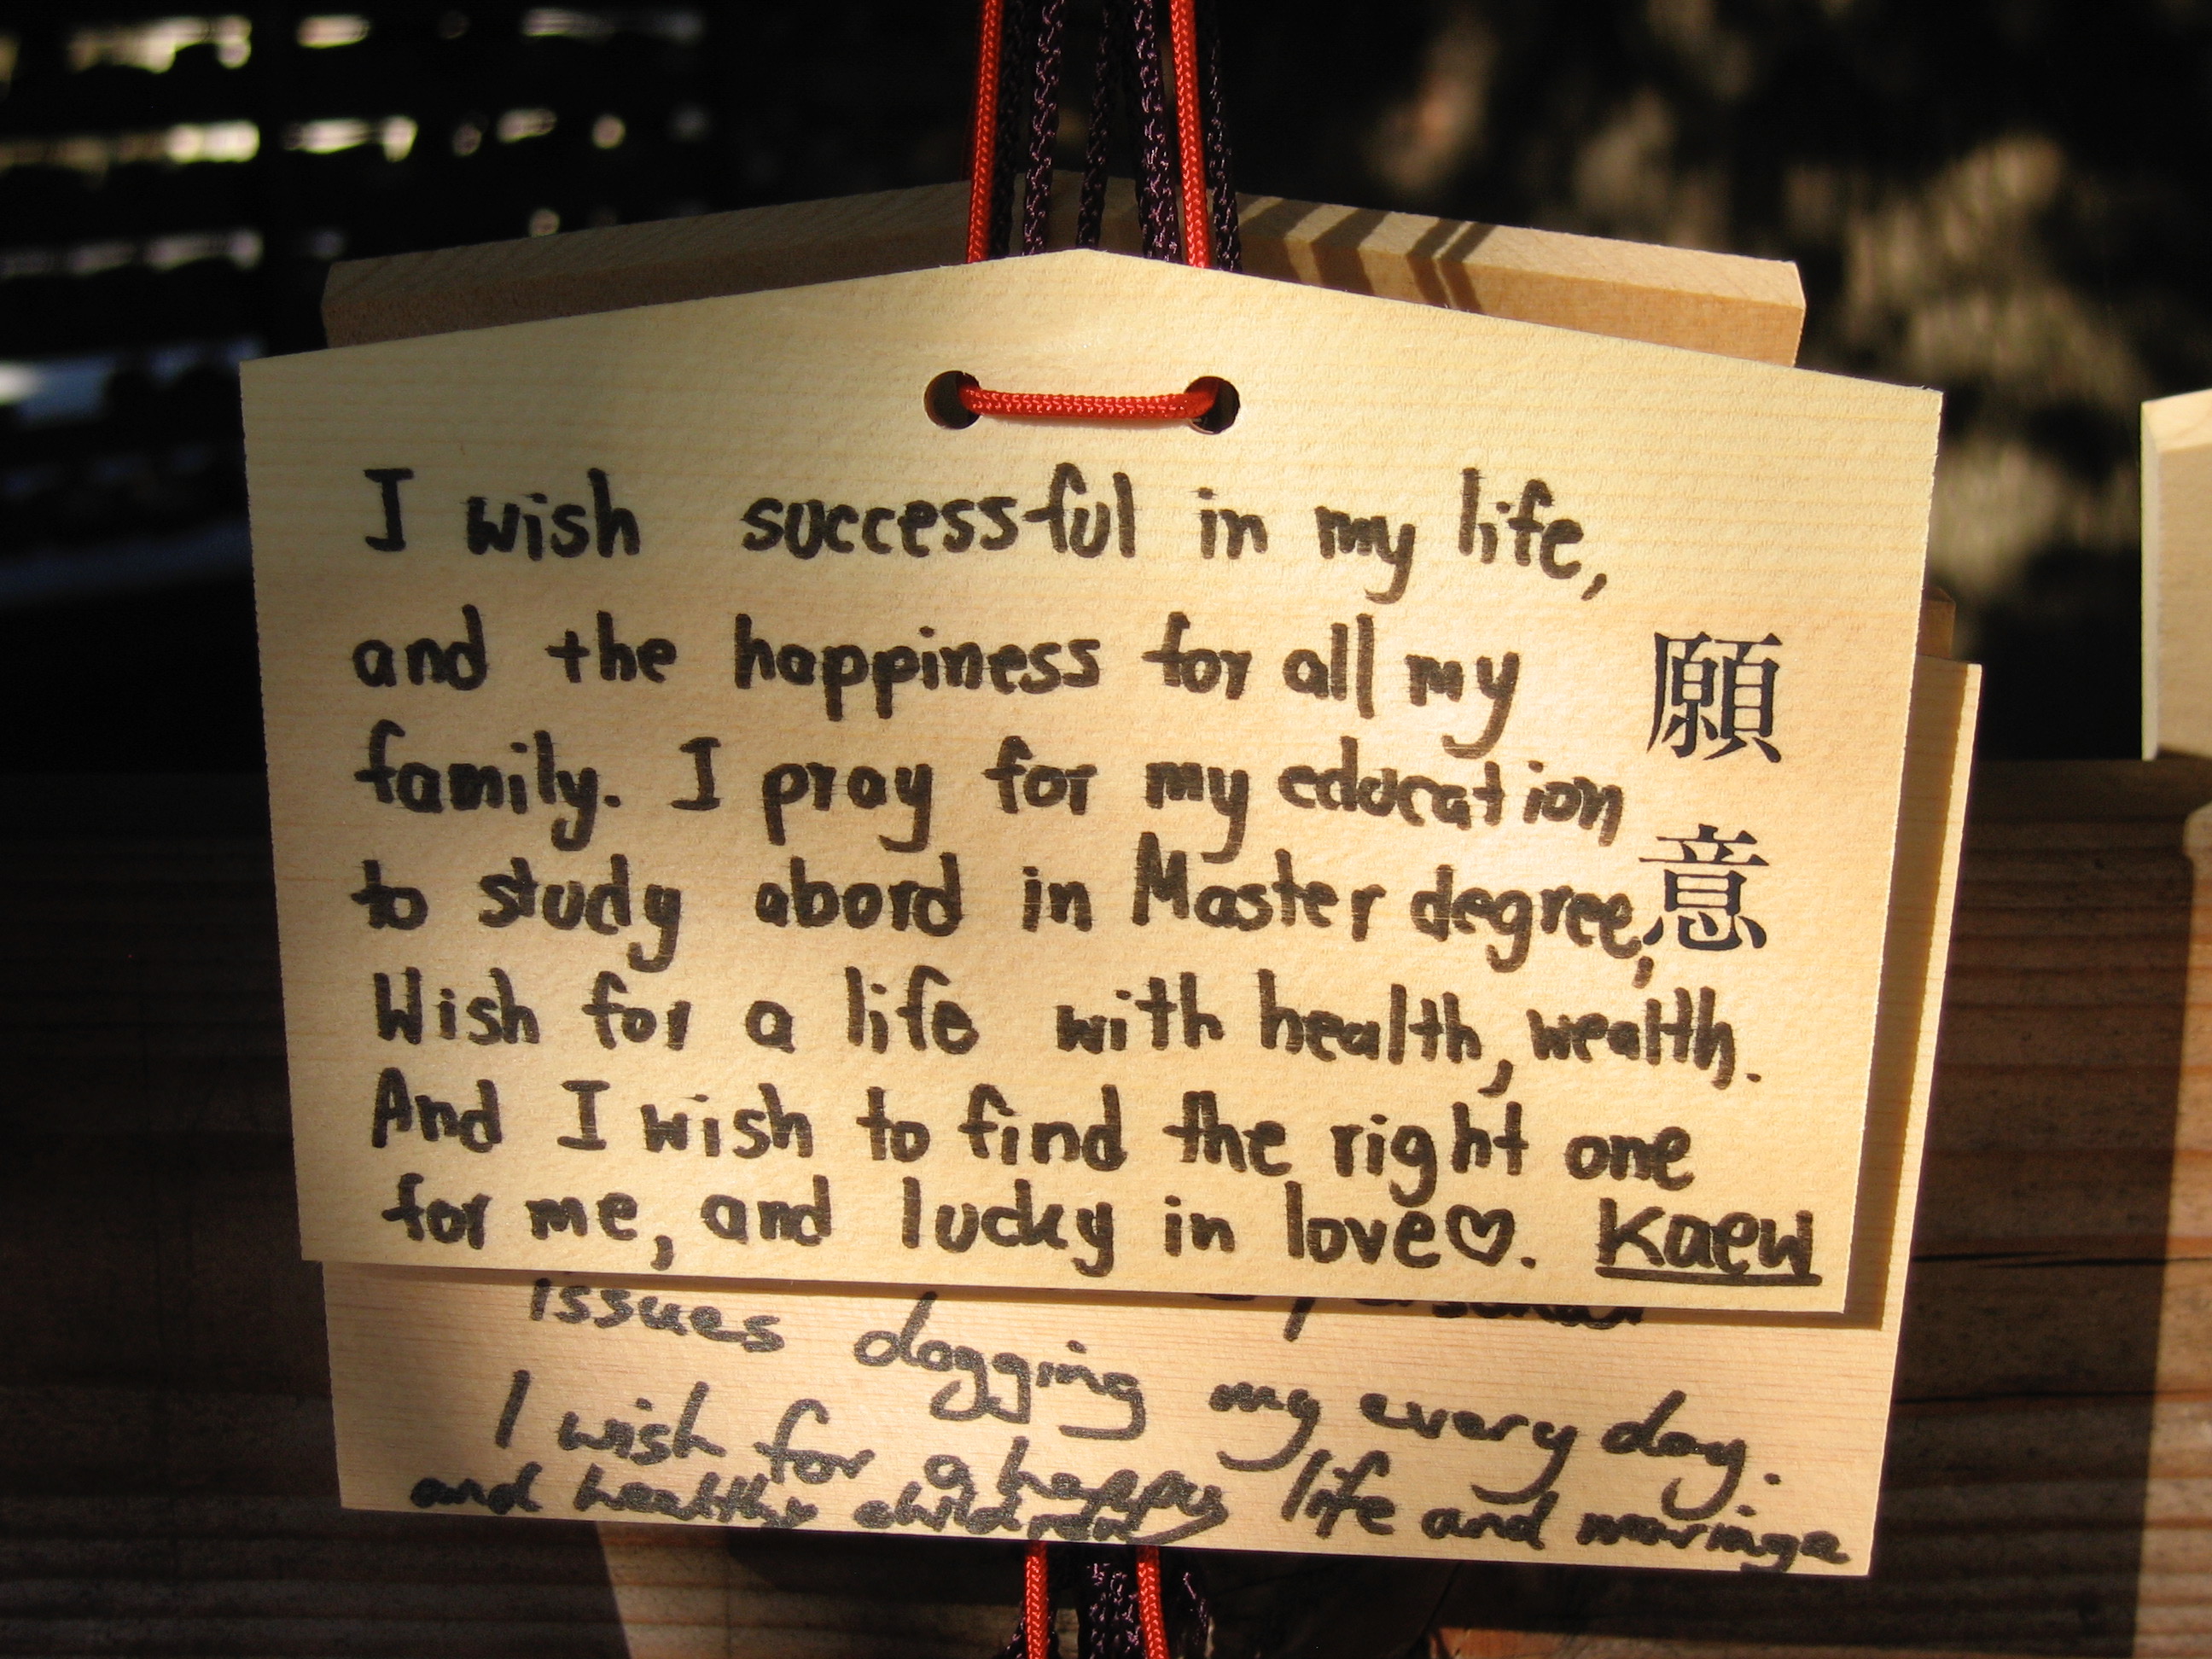 I wish successful in my life,
and the happiness for all my
family. I pray for my education
to study abord in Master degree,
Wish for a life with health, wealth.
And I wish to find the right one
for me, and lucky in love♡. Kaew
願意
issues dogging my every day.
I wish for a happy life and marriage
and healthy children